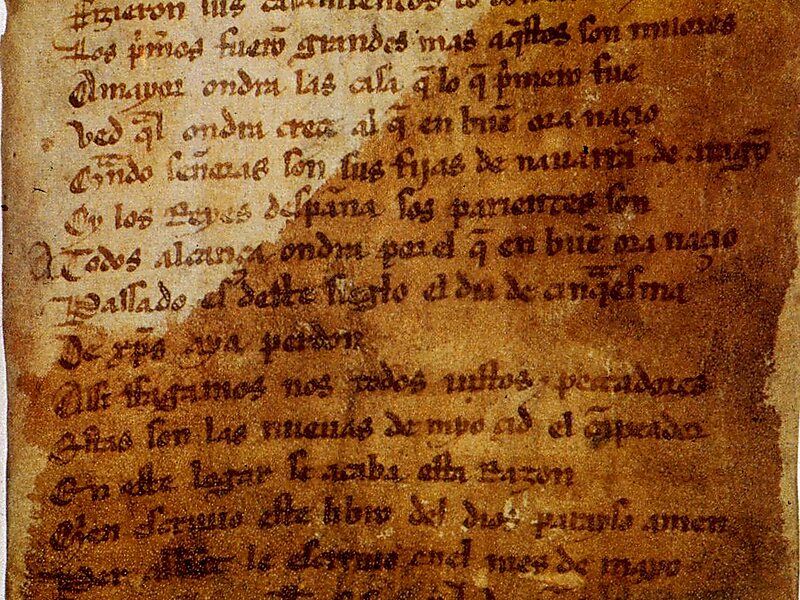 Fizieron sus casamientos
Los p̃m̃os fuero͠ grandes mas aq̃stos son miiores
Amayor ondra las casa q̃ lo q̃ p̃mero fue
Ved q̃l ondra creçe al q̃ en bue͠ ora naçio
Q̃ndo señoras son sus fijas de nauarra ⁊ de aragõ
Oy los Reyes despãna sos parientes son
A Todos alcança ondra por el q̃ en bue͠ ora naçio
Passado es deste sieglo el dia de cinq̃esma
De xp̃s aya perdon
Assi ffagamos nos todos iustos ⁊ peccadores
Estas son las nueuas de myo çid el ca͠peador
En este logar se acaba esta Razon
Qien escriuio este libro del dios parayso amen
Per abbat le escriuio enel mes de mayo